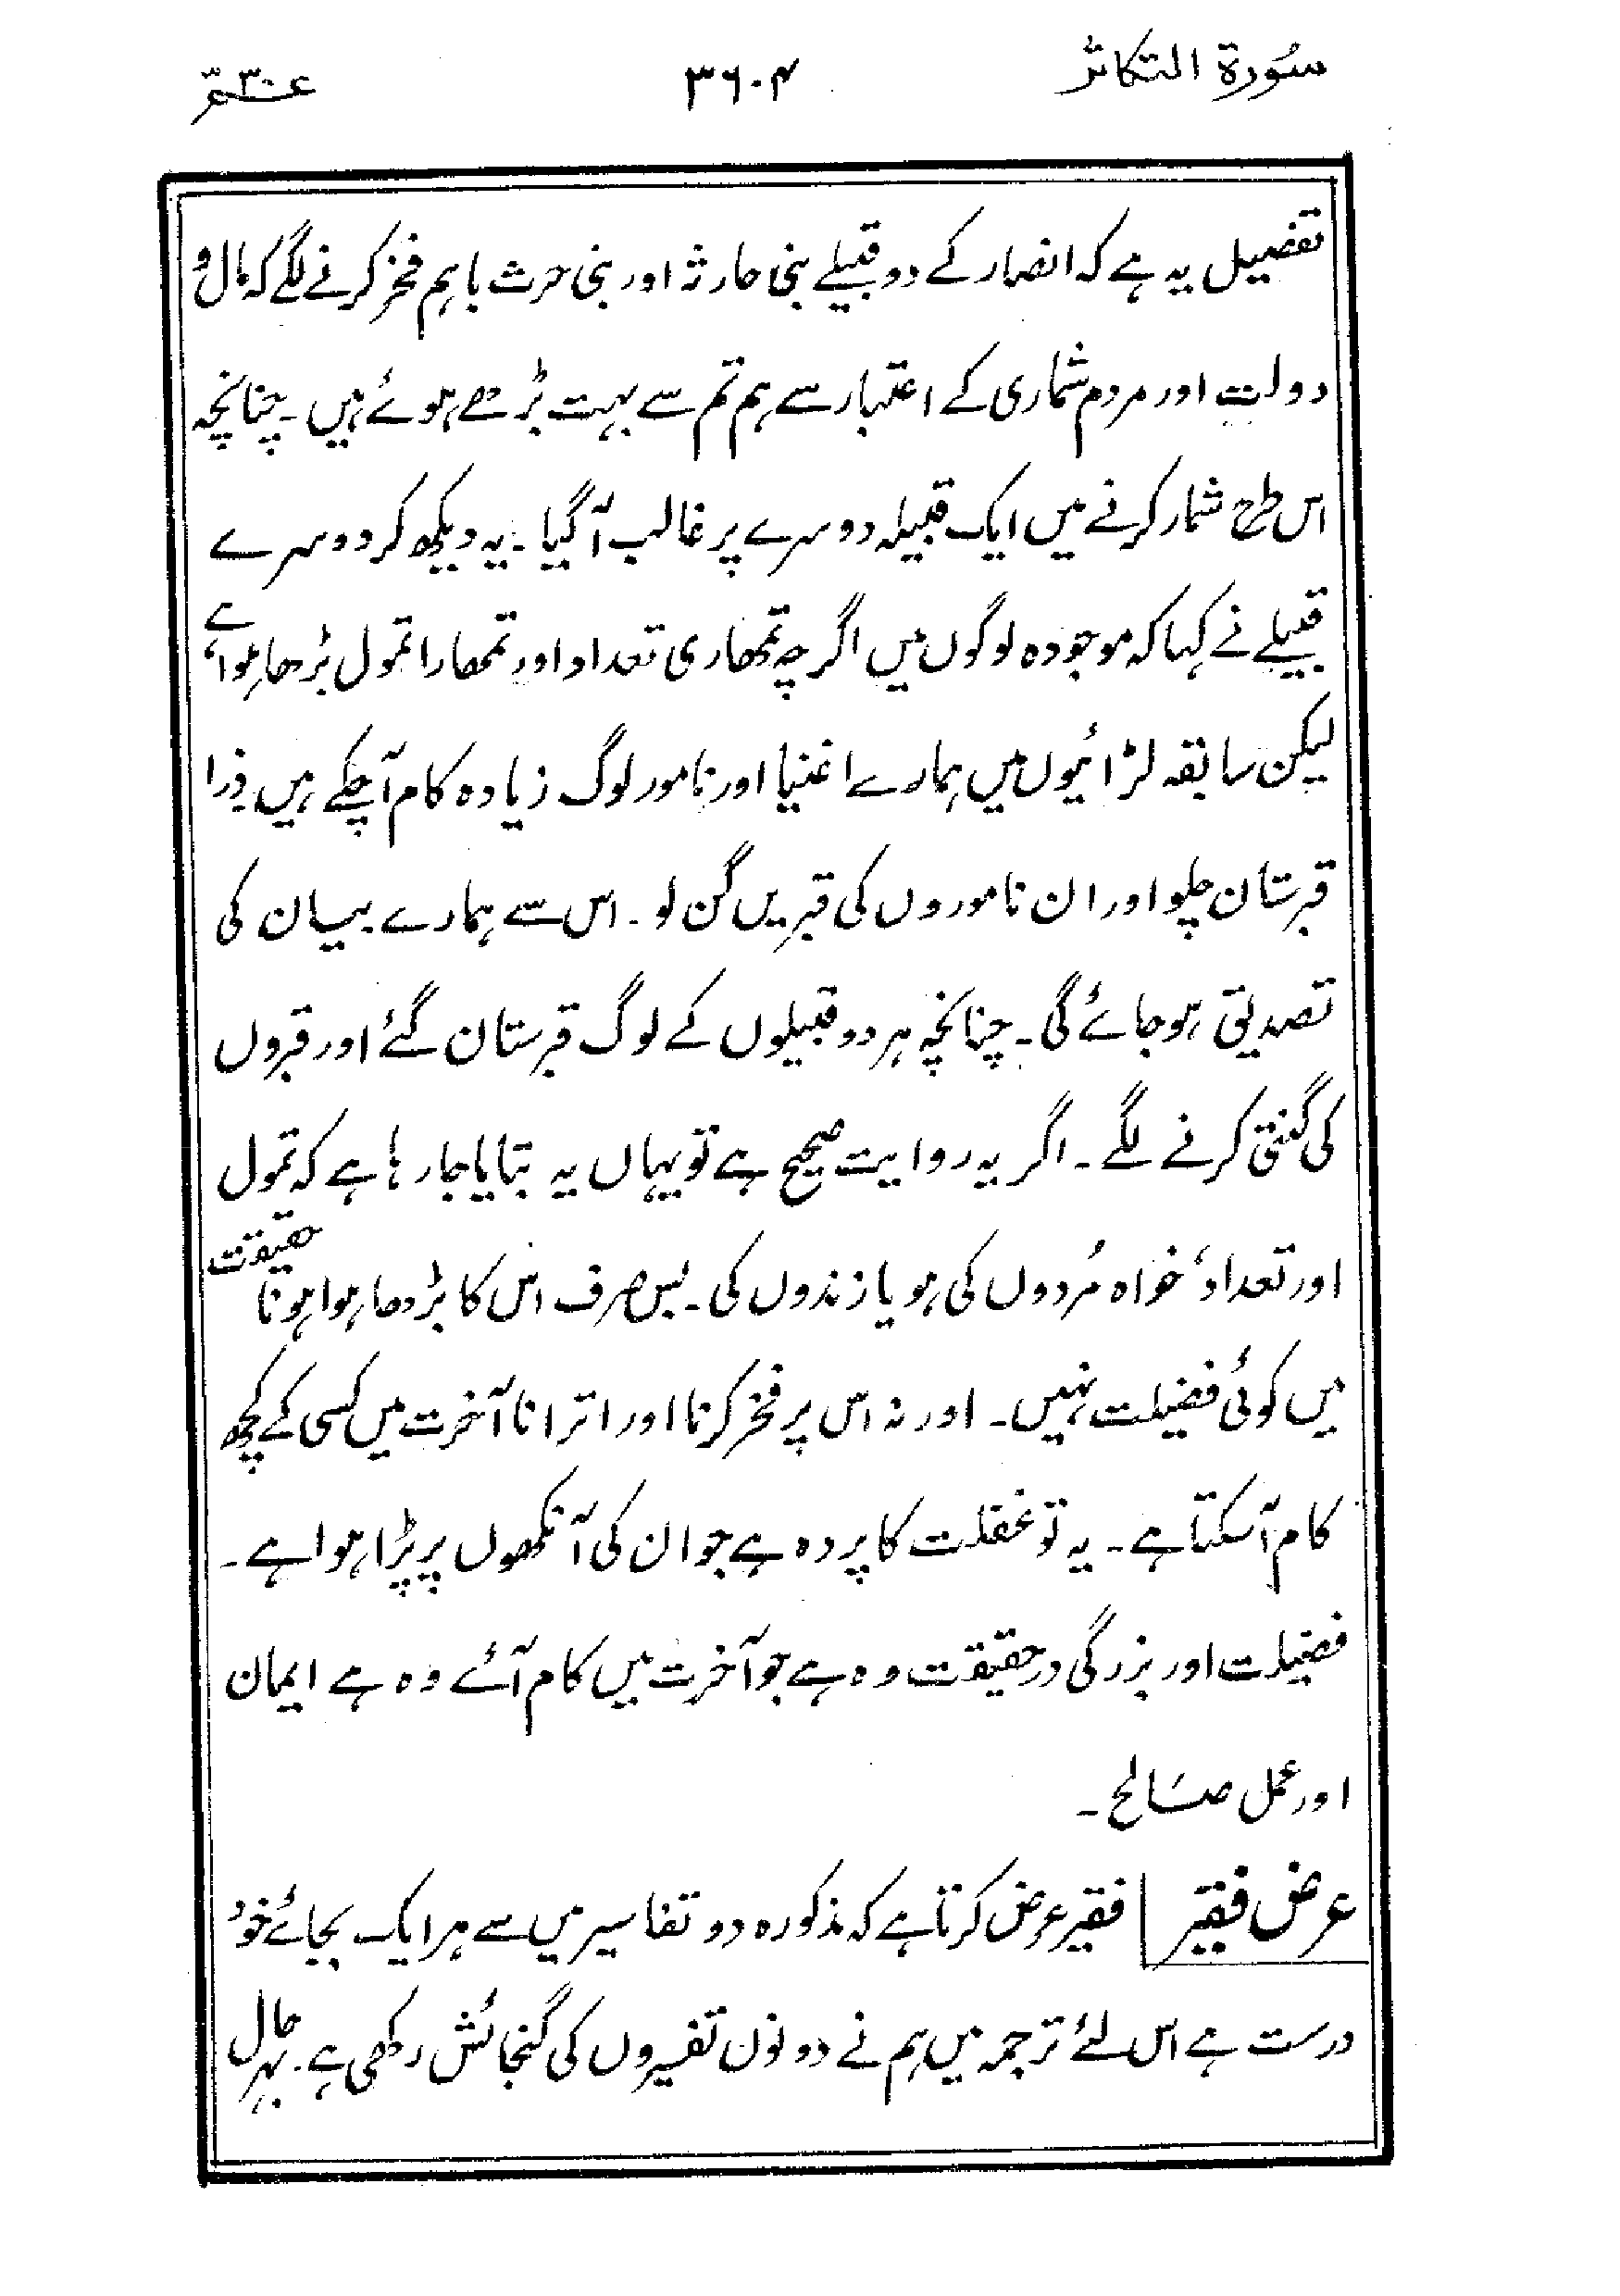 سُورۃ التکاثر
۳۶۰۴
عمّ ۳۰
تفصیل یہ ہے کہ انصار کے دو قبیلے بنی حارثہ اور بنی حرث باہم فخر کرنے لگے کہ مال و
دولت اور مردم شماری کے اعتبار سے ہم تم سے بہت بڑھے ہوئے ہیں۔ چنانچہ
اس طرح شمار کرنے میں ایک قبیلہ دوسرے پر غالب آگیا۔ یہ دیکھ کر دوسرے
قبیلے نے کہا کہ موجودہ لوگوں میں اگرچہ تمھاری تعداد اور تمھارا تمول بڑھا ہوا ہے
لیکن سابقہ لڑائیوں میں ہمارے اغنیا اور نامور لوگ زیادہ کام آچکے ہیں ذرا
قبرستان چلو اور ان ناموروں کی قبریں گن لو۔ اس سے ہمارے بیان کی
تصدیق ہوجائے گی۔ چنانچہ ہر دو قبیلوں کے لوگ قبرستان گئے اور قبروں
کی گنتی کرنے لگے۔ اگر یہ روایت صحیح ہے تو یہاں یہ بتایا جا رہا ہے کہ تمول
اور تعداد، خواہ مُردوں کی ہو یا زندوں کی۔ بس صرف اس کا بڑھا ہوا ہونا حقیقت
میں کوئی فضیلت نہیں۔ اور نہ اس پر فخر کرنا اور اترانا آخرت میں کسی کے کچھ
کام آسکتا ہے۔ یہ تو غفلت کا پردہ ہے جو ان کی آنکھوں پر پڑا ہوا ہے۔
فضیلت اور بزرگی درحقیقت وہ ہے جو آخرت میں کام آئے وہ ہے ایمان
اور عمل صَالح۔
عرض فقیر فقیر عرض کرتا ہے کہ مذکورہ دو تفاسیر میں سے ہر ایک بجائے خود
درست ہے اس لئے ترجمہ میں ہم نے دونوں تفسیروں کی گنجائش رکھی ہے۔ بہرحال